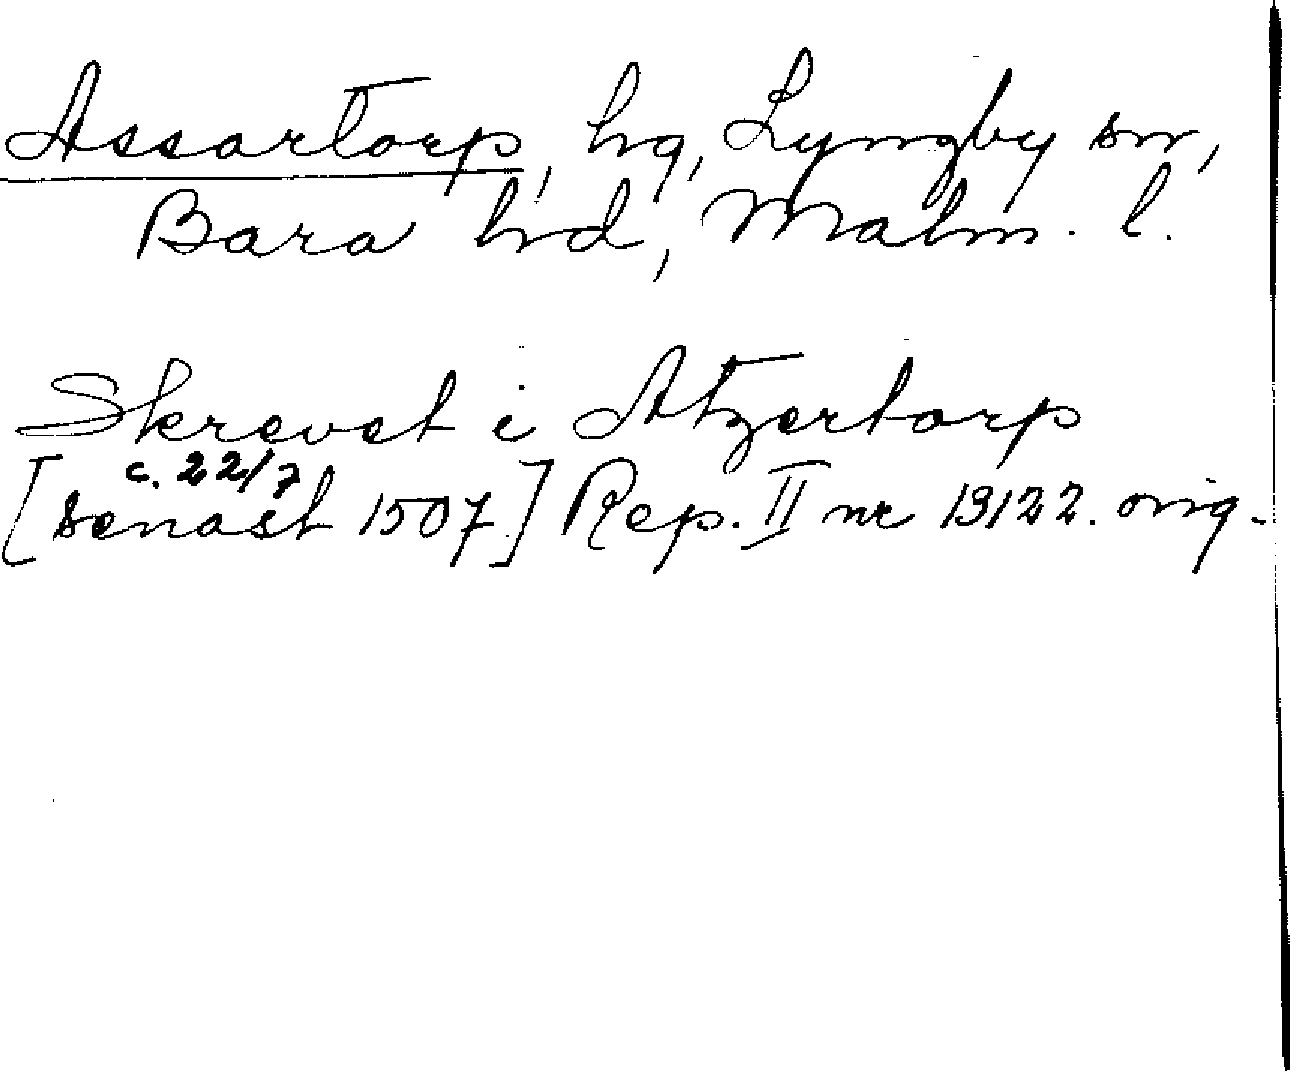 Assartorp, hg, Lyngby sn,
Bara hd, Malm. l.
Skrevet i Atzertorp
c. 22/7
[senast 1507] Rep. II nr 13122. orig.